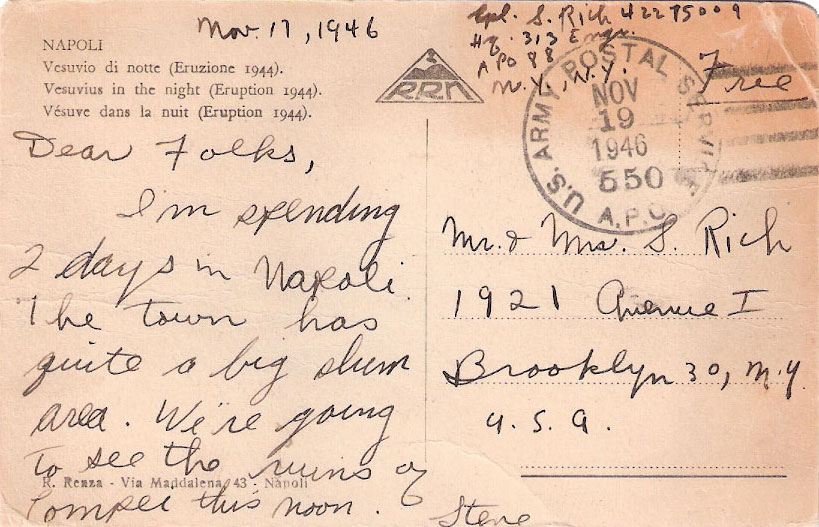 Nov. 17, 1946
Cpl. S. Rich 42275009
Hq. 313 Engr.
APO 88
N.Y., N.Y.
Free
NAPOLI
Vesuvio di notte (Eruzione 1944).
Vesuvius in the night (Eruption 1944).
Vésuve dans la nuit (Eruption 1944).
RRN
U.S. ARMY POSTAL SERVICE
NOV
19
1946
550
A.P.O.
Dear Folks,
I'm spending
2 days in Napoli.
The town has
quite a big slum
area. We're going
to see the ruins of
Pompei this noon.
Steve
Mr. & Mrs. S. Rich
1921 Avenue I
Brooklyn 30, N.Y.
U.S.A.
R. Renza - Via Maddalena, 43 - Napoli